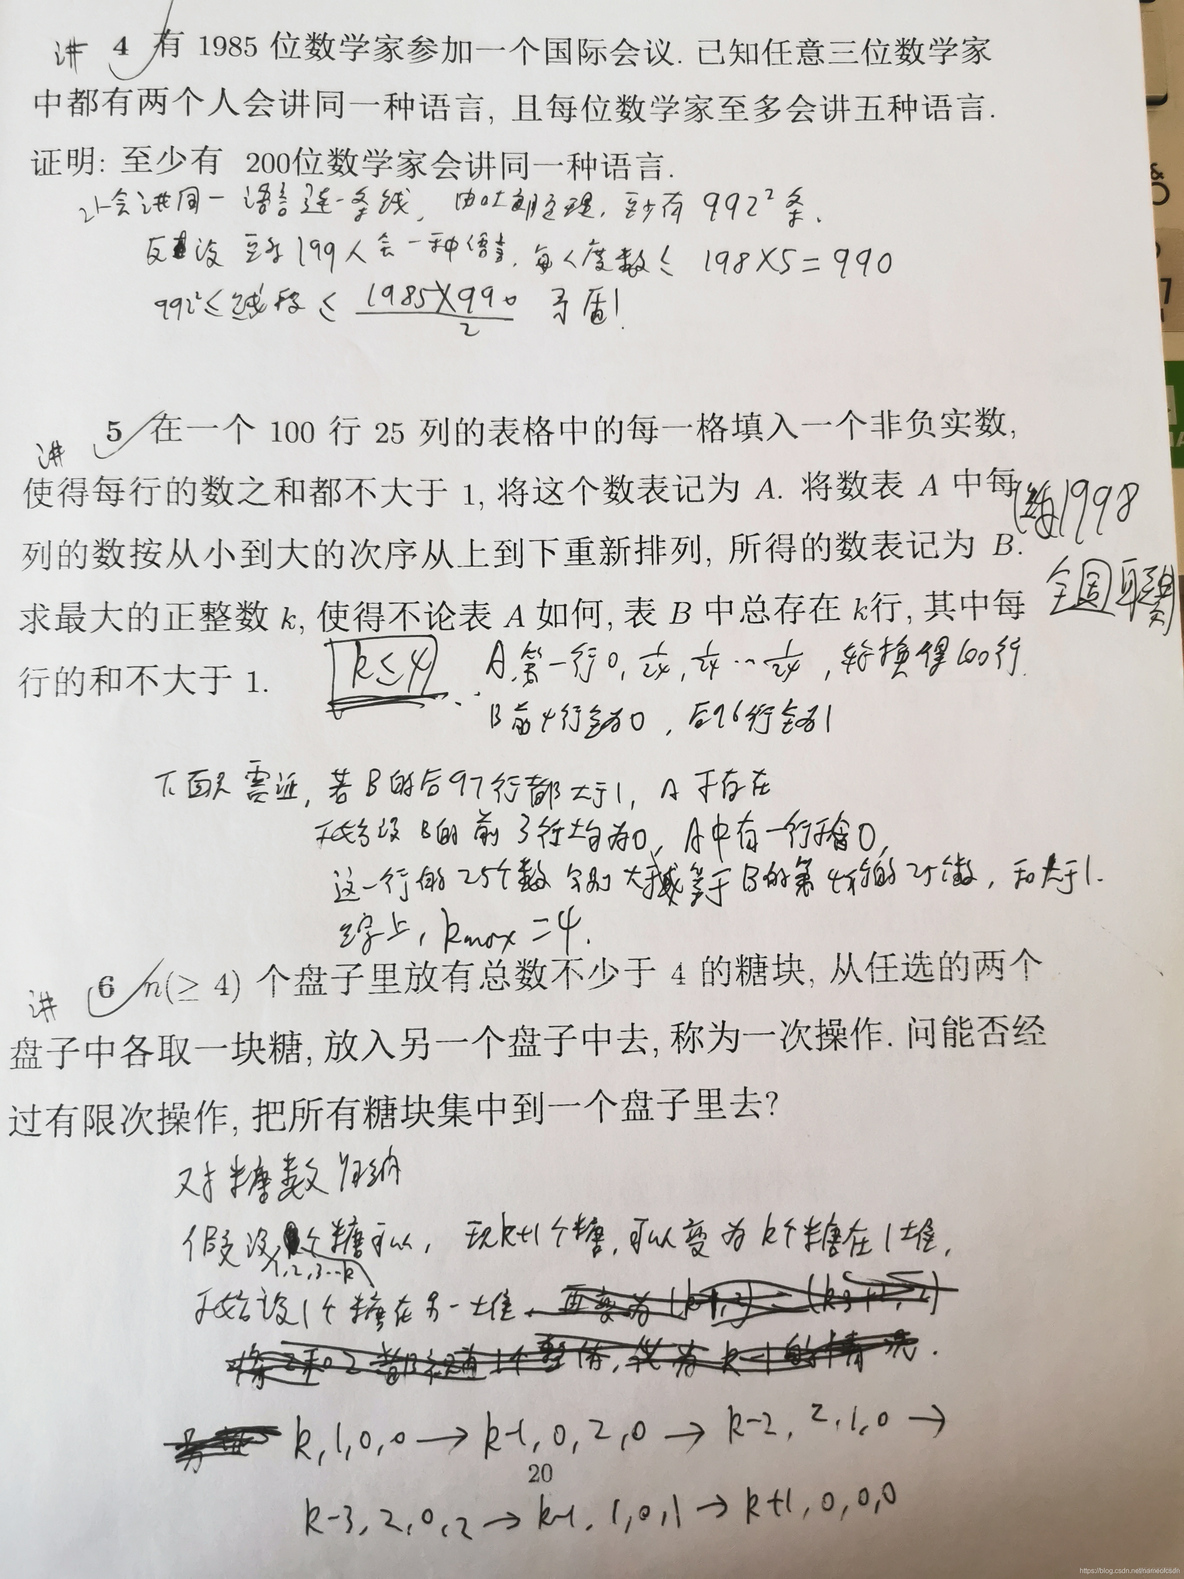 讲 4 有 1985 位数学家参加一个国际会议. 已知任意三位数学家
中都有两个人会讲同一种语言, 且每位数学家至多会讲五种语言.
证明: 至少有 200位数学家会讲同一种语言.
2人会讲同一语言连一条线, 由吐朗定理, 至少有 992² 条.
反设 至多 199人会一种语言, 每人度数 ≤ 198×5=990
992² ≤ 线段 ≤ 1985×990/2 矛盾!
讲 5 在一个 100 行 25 列的表格中的每一格填入一个非负实数,
使得每行的数之和都不大于 1, 将这个数表记为 A. 将数表 A 中每
列的数按从小到大的次序从上到下重新排列, 所得的数表记为 B.
1998
求最大的正整数 k, 使得不论表 A 如何, 表 B 中总存在 k行, 其中每
全国联赛
行的和不大于 1.
k≤4 A 第一行 0, 1/24, 1/24 … 1/24, 轮换得100行.
B 前4行全为0, 后96行全为1
下面只需证, 若 B 的后97行都大于1, A 不存在
不妨设 B的前3行均为0, A中有一行不含0,
这一行的 25个数 分别大于或等于 B的第4行的25个数, 和大于1.
综上, kmax =4.
讲 6 n(≥ 4) 个盘子里放有总数不少于 4 的糖块, 从任选的两个
盘子中各取一块糖, 放入另一个盘子中去, 称为一次操作. 问能否经
过有限次操作, 把所有糖块集中到一个盘子里去?
对糖数归纳
假设 个糖可以, 现k+1个糖, 可以变为 k个糖在1堆,
1,2,3…k
不妨设1个糖在另一堆
k,1,0,0 → k-1,0,2,0 → k-2,2,1,0 →
20
k-3,2,0,2 → k-1,1,0,1 → k+1,0,0,0
https://blog.csdn.net/nameofcsdn